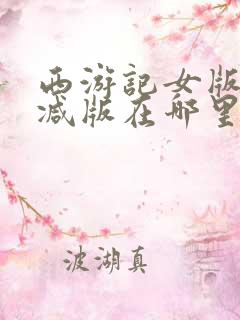 西游記女版
減版在哪里
波湖真